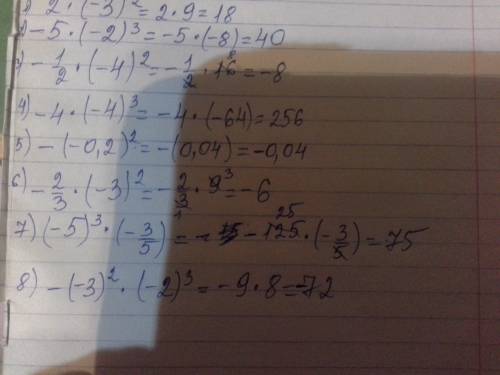 1) 2·(-3)²=2·9=18
2) -5·(-2)³=-5·(-8)=40
3) -1/2·(-4)²=-1/2·16 8=-8
4) -4·(-4)³=-4·(-64)=256
5) -(-0,2)²=-(0,04)=-0,04
6) -2/3·(-3)²=-2/3 1·9 3=-6
7) (-5)³·(-3/5)=-125 25·(-3/5)=75
8) -(-3)²·(-2)³=-9·8=-72